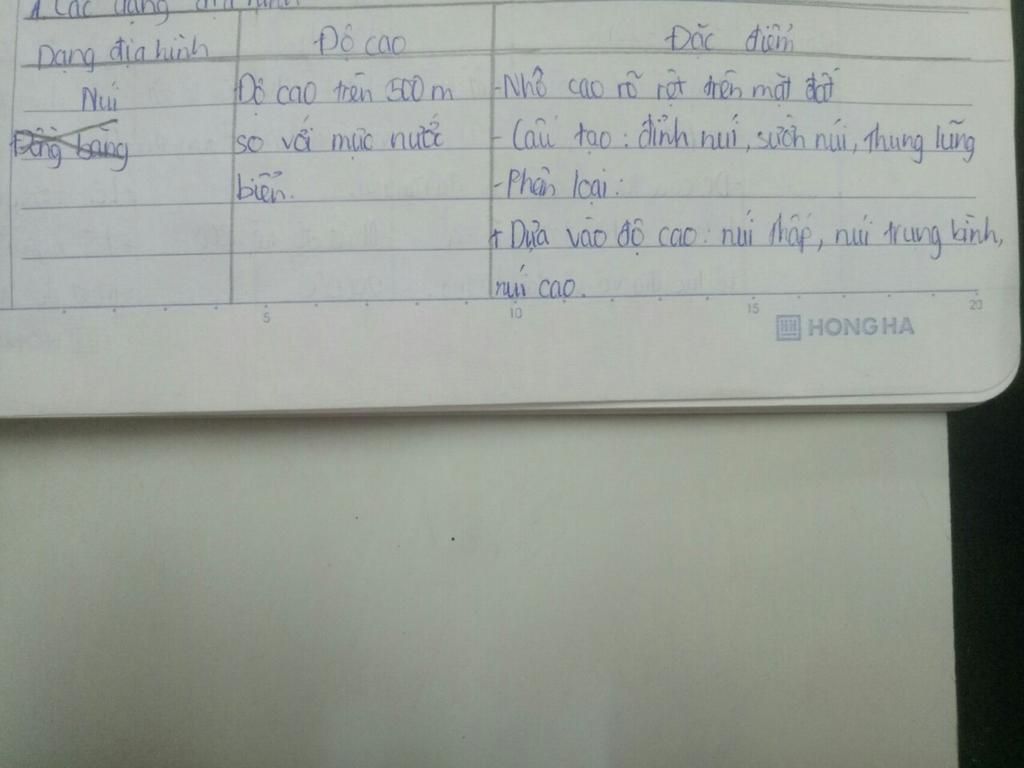 1. Các dạng địa hình
Dạng địa hình Độ cao Đặc điểm
Núi Độ cao trên 500 m - Nhô cao rõ rệt trên mặt đất
Đồng bằng so với mực nước - Cấu tạo: đỉnh núi, sườn núi, thung lũng
biển. - Phân loại:
+ Dựa vào độ cao: núi thấp, núi trung bình,
núi cao.
5 10 15 20
HONG HA